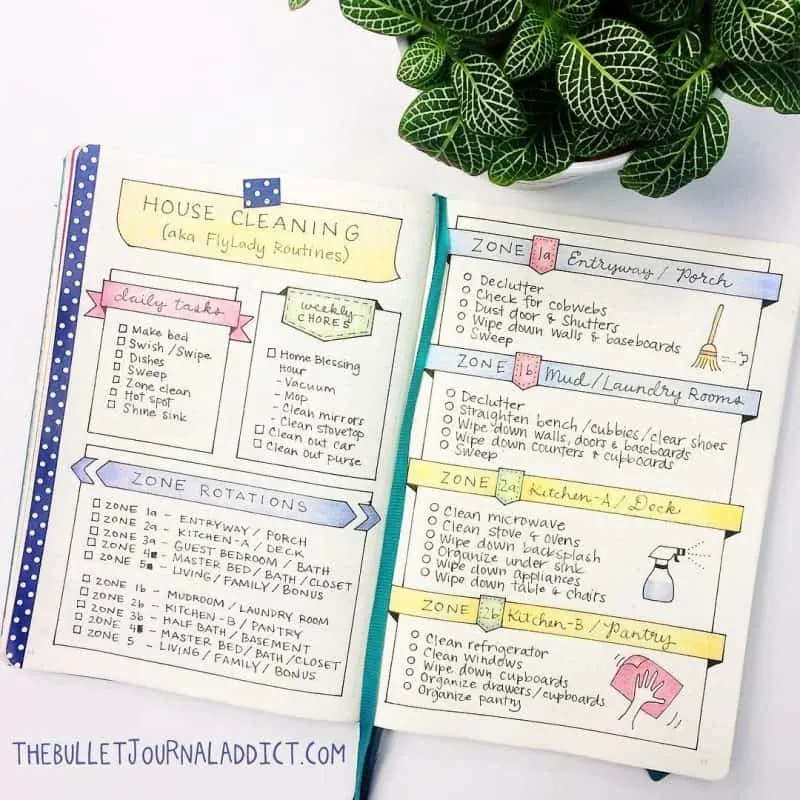 HOUSE CLEANING
(aka FlyLady Routines)
daily tasks
Make bed
Swish/Swipe
Dishes
Sweep
Zone clean
Hot spot
Shine sink
weekly
CHORES
Home Blessing
Hour
- Vacuum
- Mop
- Clean mirrors
- Clean stovetop
Clean out car
Clean out purse
ZONE ROTATIONS
ZONE 1a - ENTRYWAY/PORCH
ZONE 2a - KITCHEN-A/DECK
ZONE 3a - GUEST BEDROOM/BATH
ZONE 4 - MASTER BED/BATH/CLOSET
ZONE 5 - LIVING/FAMILY/BONUS
ZONE 1b - MUDROOM/LAUNDRY ROOM
ZONE 2b - KITCHEN-B/PANTRY
ZONE 3b - HALF BATH/BASEMENT
ZONE 4 - MASTER BED/BATH/CLOSET
ZONE 5 - LIVING/FAMILY/BONUS
ZONE 1a Entryway/Porch
Declutter
Check for cobwebs
Dust door & Shutters
Wipe down walls & baseboards
Sweep
ZONE 1b Mud/Laundry Rooms
Declutter
Straighten bench/cubbies/clear shoes
Wipe down walls, doors & baseboards
Wipe down counters & cupboards
Sweep
ZONE 2a Kitchen-A/Deck
Clean microwave
Clean stove & ovens
Wipe down backsplash
Organize under sink
Wipe down appliances
Wipe down table & chairs
ZONE 2b Kitchen-B/Pantry
Clean refrigerator
Clean Windows
Wipe down cupboards
Organize drawers/cupboards
Organize pantry
THEBULLETJOURNALADDICT.COM